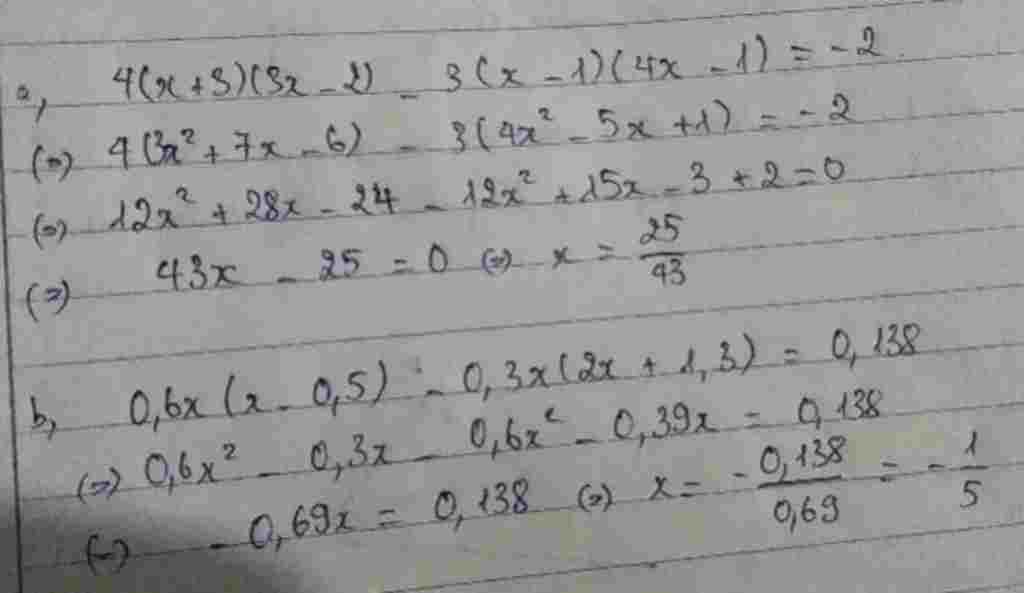 a, 4(x+3)(3x-2) - 3(x-1)(4x-1) = -2
(=) 4(3x² + 7x - 6) - 3(4x² - 5x + 1) = -2
(=) 12x² + 28x - 24 - 12x² + 15x - 3 + 2 = 0
(=) 43x - 25 = 0 (=) x = 25/43
b, 0,6x(x - 0,5) - 0,3x(2x + 1,3) = 0,138
(=) 0,6x² - 0,3x - 0,6x² - 0,39x = 0,138
(=) -0,69x = 0,138 (=) x = -0,138/0,69 = -1/5